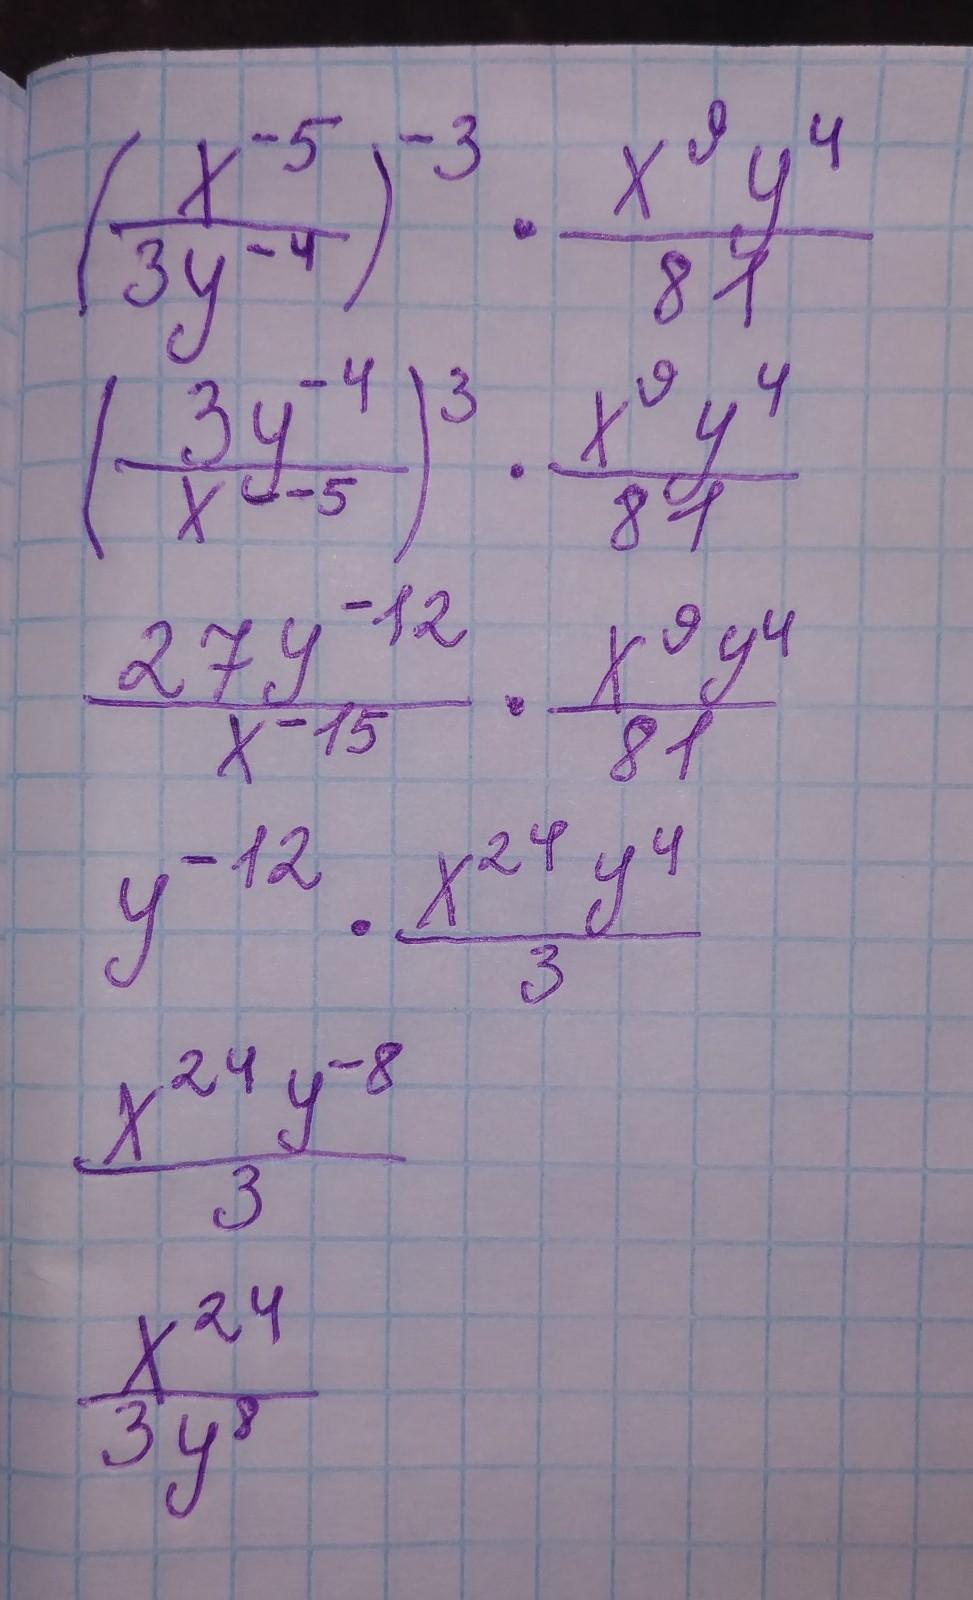 (x^{-5} / 3y^{-4})^{-3} · x^9 y^4 / 81
(3y^{-4} / x^{-5})^3 · x^9 y^4 / 81
27y^{-12} / x^{-15} · x^9 y^4 / 81
y^{-12} · x^{24} y^4 / 3
x^{24} y^{-8} / 3
x^{24} / 3y^8